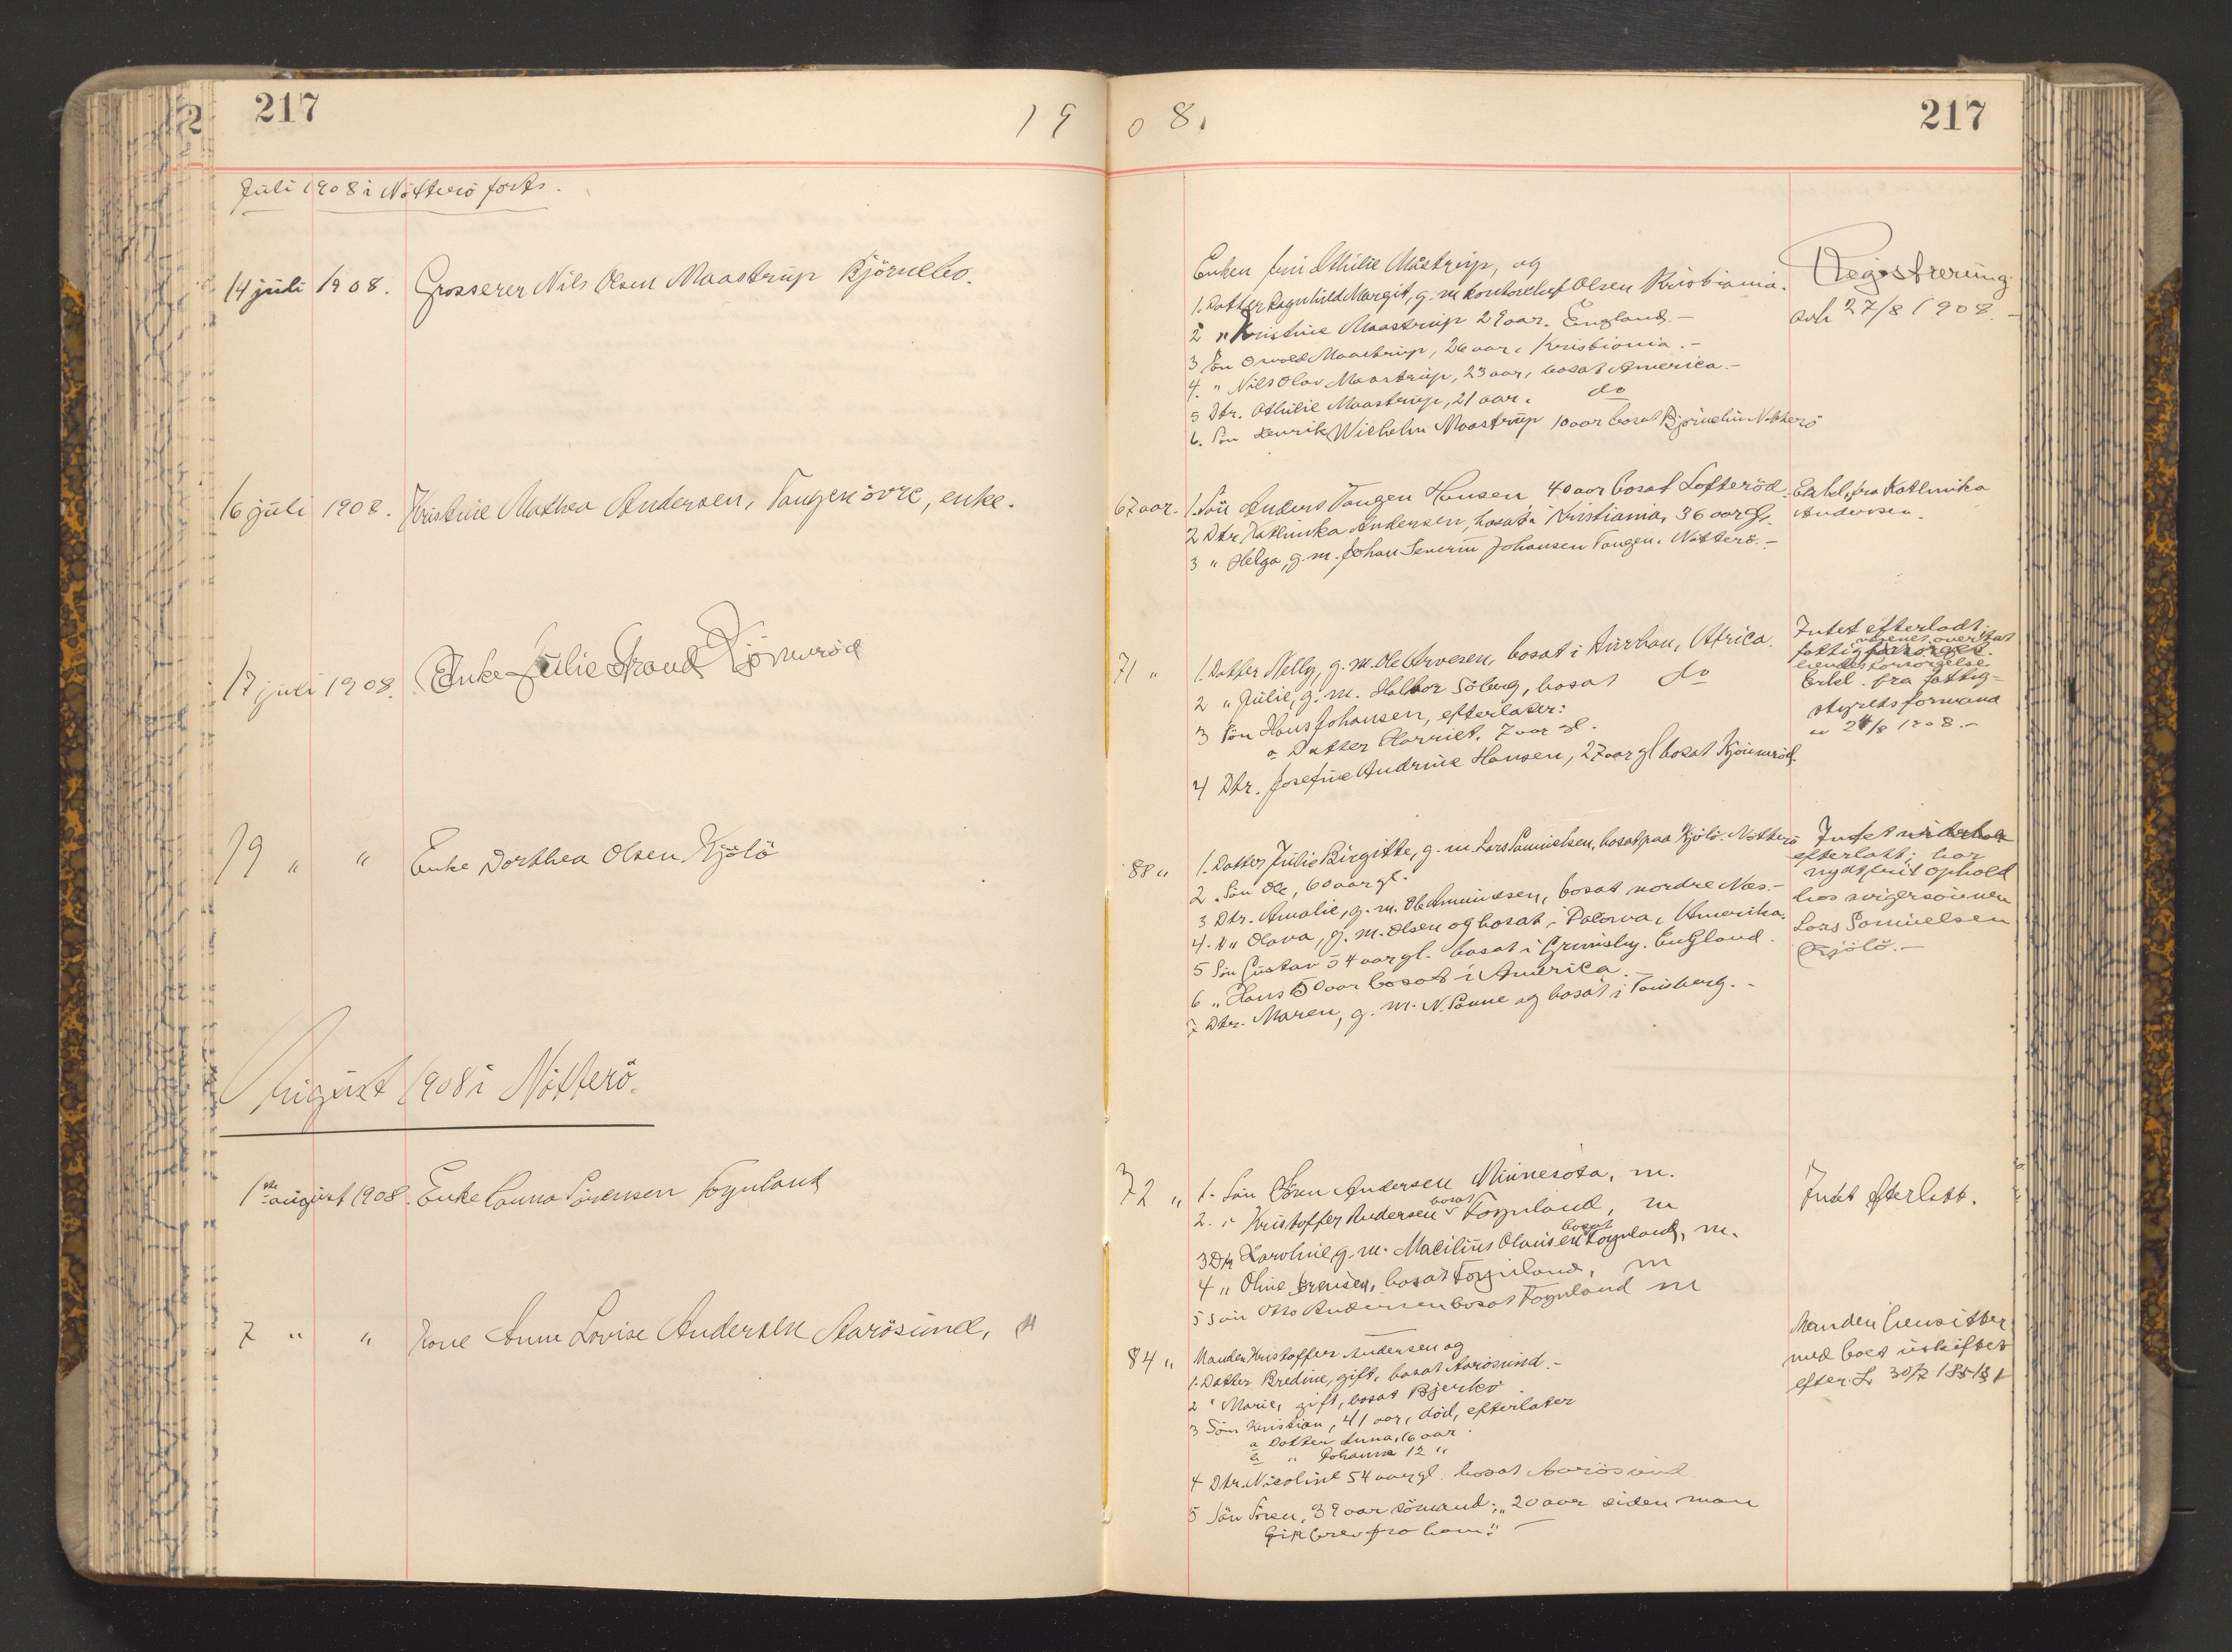 217
19
08,
217
Juli 1908 i Nötterö forts.
14 juli 1908. Grosserer Nils Olsen Maastrup Björnebo.
Enken fru Othilie Mastrup, og
1. Datter Ragnhild Margit, g. m. kontorchef Olsen Kristiania.
2 " Kristine Maastrup 29 aar. England.-
3 Sön Osvald Maastrup, 26 aar, Kristiania.-
4. " Nils Olav Maastrup, 23 aar, bosat America.-
5 Dtr. Othilie Maastrup, 21 aar. do
6. Sön Henrik Wilhelm Maastrup 10 aar bosat Nötterö
Registrering
avh 27/8 1908.-
16 juli 1908. Kristine Mathea Andersen, Tangen övre, enke.
67 aar. 1. Sön Anders Tangen Hansen 40 aar bosat Lofteröd.
2 Dtr. Kathinka Andersen, bosat i Kristiania, 36 aar gl.
3 " Helga, g. m. Johan Severin Johansen Tangen. Nötterö.-
Erkl. fra Kathinka
Andersen.
17 juli 1908. Enke Julie Strand Kjönneröd
71 " 1. Datter Nelly, g. m. Ole Arvesen, bosat i Durban, Africa.
2 " Julie, g. m. Halvor Söberg, bosat do
3 Sön Hans Johansen, efterlater:
a Datter Harriet, 7 aar gl.
4 Dtr. Josefine Andrine Hansen, 27 aar gl bosat Kjönneröd.
Intet efterladt.
hendes forsörgelse
Erkl. fra fattig-
styrets formand
24/8 1908.-
19 " " Enke Dorthea Olsen Kjölö
88 " 1. Datter Julie Birgitte, g. m. Lars Samuelsen, bosat paa Kjölö. Nötterö
2. Sön Ole, 60 aar gl.
3 Dtr. Amalie, g. m. Ole Amundsen, bosat nordre Næs.-
4. " Olava, g. m. Olsen og bosat i America.
5 Sön Gustav 54 aar gl. bosat i Grimsby. England.
6 " Hans 50 aar bosat i America.-
7 Dtr. Maren, g. m. N. Sanne og bosat i Tönsberg.-
Intet
efterlatt; har
nydt frit ophold
hos svigersönnen
Lars Samuelsen
Kjölö.-
August 1908 i Nötterö.
1ste august 1908. Enke Hanna Sörensen Föynland
72 " 1. Sön Sören Andersen Minnesota, m.
2. " Kristoffer Andersen bosat Föynland, m
3 Dtr Karoline g. m. Olausen bosat Föynland, m.
4 " Oline, bosat Föynland, m
5 Sön Otto Andersen bosat Föynland m
Intet efterlatt.
7 " " Kone Anne Lovise Andersen Aarösund,
84 " Manden Kristoffer Andersen og
1. Datter Bredine, gift, bosat Aarösund.-
2 " Marie, gift, bosat Bjerkö
3 Sön Kristian, 41 aar, död, efterlater
a Datter Anna, 16 aar.
b " Johanne 12 "
4 Dtr. Nicoline 54 aar gl. bosat Aarösund
5 Sön Sören, 39 aar sömand; "20 aar siden man
fik brev fra ham".-
Manden hensitter
med boet uskiftet
efter L. 30/7 1851